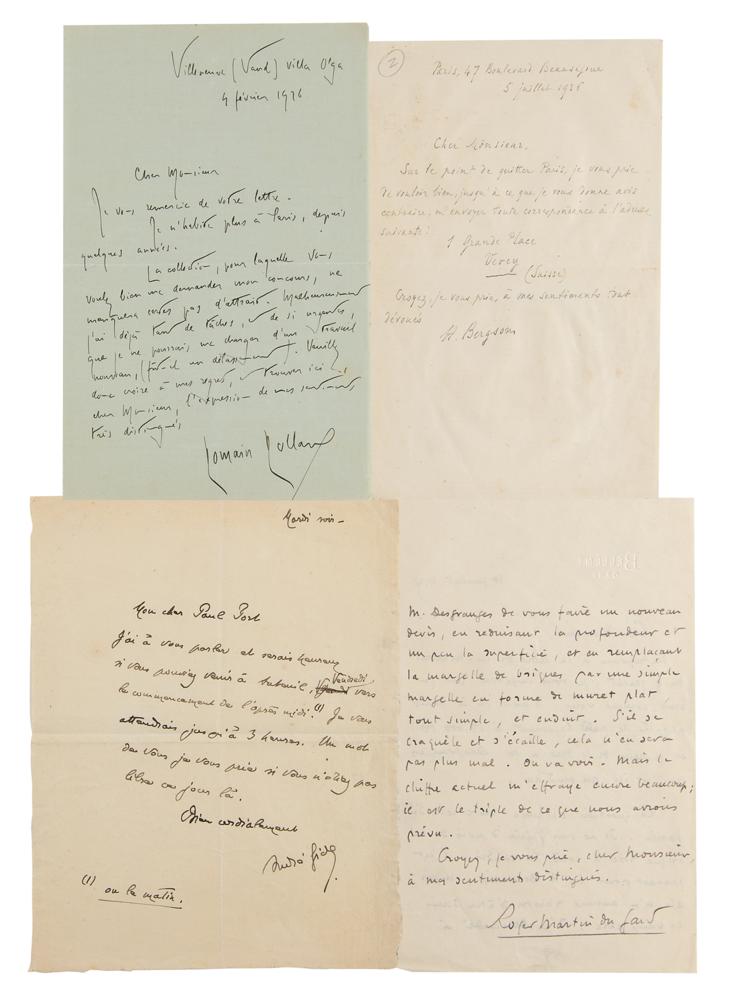 Villeneuve (Vaud) villa Olga
4 février 1926
Cher Monsieur
Je vous remercie de votre lettre.
Je n'habite plus à Paris, depuis
quelques années.
La collection, pour laquelle vous
voulez bien me demander mon concours, ne
manquera certes pas d'attrait. Malheureusement
j'ai déjà tant de tâches, et de si urgentes,
que je ne pourrais me charger d'un travail
nouveau, (fût-il un délassement). Veuillez
donc croire à mes regrets, et trouver ici
cher Monsieur, l'expression de mes sentiments
très distingués
Romain Rolland
2
Paris, 47 Boulevard Beauséjour
5 juillet 1926
Cher Monsieur,
Sur le point de quitter Paris, je vous prie
de vouloir bien, jusqu'à ce que je vous donne avis
contraire, m'envoyer toute correspondance à l'adresse
suivante :
1 Grande Place
Vevey
(Suisse)
Croyez, je vous prie, à mes sentiments tout
dévoués
H. Bergson
Mardi soir –
Mon cher Paul Fort
J'ai à vous parler et serais heureux
si vous pouviez venir à Auteuil, Vendredi vers
le commencement de l'après midi. (1) Je vous
attendrais jusqu'à 3 heures. Un mot
de vous je vous prie si vous n'étiez pas
libre ce jour là.
Bien cordialement
André Gide
(1) ou le matin.
M. Desgranges de vous faire un nouveau
devis, en réduisant la profondeur et
un peu la superficie, et en remplaçant
la margelle de briques par une simple
margelle en forme de muret plat,
tout simple, et enduit. S'il se
craquèle et s'écaille, cela n'en sera
pas plus mal. On va voir. Mais le
chiffre actuel m'effraye encore beaucoup ;
il est le triple de ce que nous avions
prévu.
Croyez, je vous prie, cher Monsieur,
à mes sentiments distingués.
Roger Martin du Gard